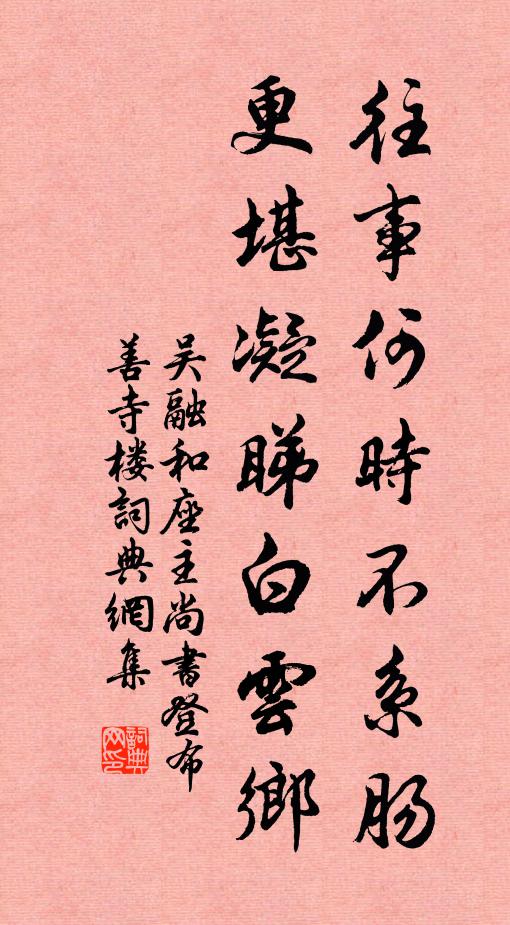 往事何時不系肠
更堪凝睇白雲鄉
吴融和座主尚書登布
善寺楼詞典網集
詞典
网印